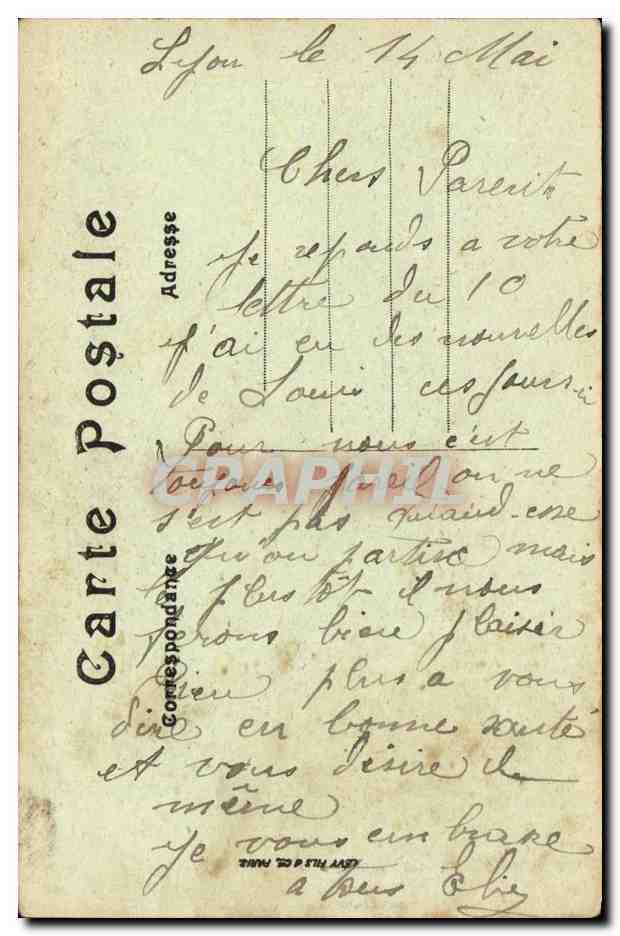 Lyon le 14 Mai
Chers Parents
je reponds a votre
lettre du 10
j'ai eu des nouvelles
de Louis ces jours-ci
Pour nous c'est
toujours pareil on ne
s'est pas quand-esse
qu'on partira mais
le plus tôt il nous
ferons bien plaisir
Rien plus a vous
dire en bonne santé
et vous désire de
même
je vous embrase
a tous Elie
Carte Postale
Adresse
Correspondance
LEVY FILS & CIE, PARIS
CRAPHIL